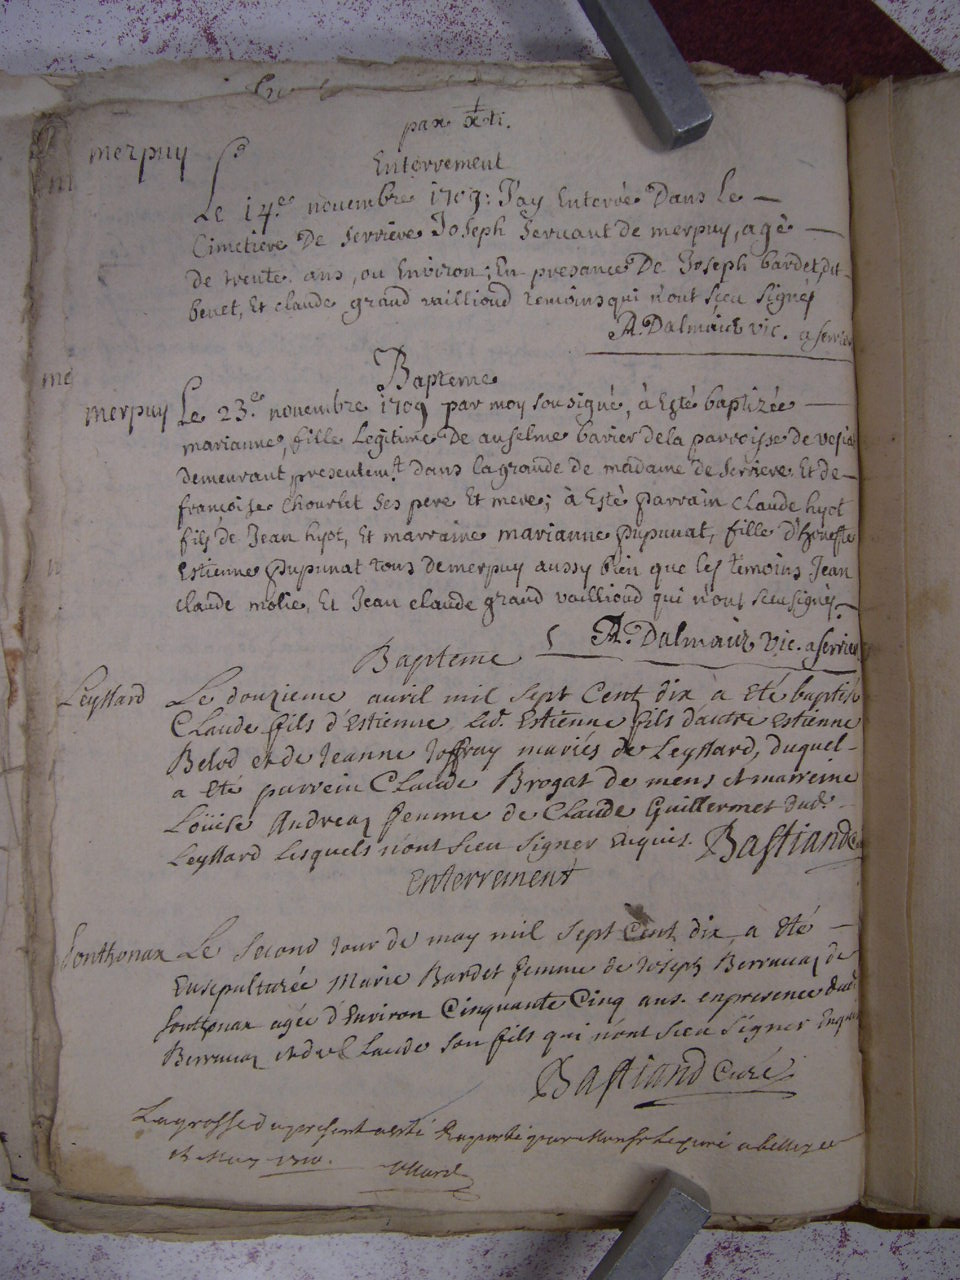 pax xti.
merpuy
Enterrement
Le 14.e novembre 1709: J'ay Enterré Dans Le
Cimetiere De Serriere Joseph Servant de merpuy, agè
de trente ans, ou Environ; En presance De Joseph bardet, dit
benet, Et claude grand vaillioud temoins qui n'ont sceu signés
A. Dalmaiz vic. a serrie
Bapteme
merpuy Le 23.e novembre 1709 par moy sousigné, à Esté baptizée
marianne, fille Legitime De anselme bavier de la parroisse de
demeurant, presentem.t dans la grande de madame de Serriere Et de
françoise Chourlet ses pere Et mere; à Esté parrain Claude hyot
fils de Jean hyot, Et marraine marianne pupunat, fille d'honeste
Estienne pupunat tous de merpuy aussy bien que les temoins Jean
claude molie, Et Jean claude grand vaillioud qui n'ont sceu signés
A. Dalmaiz vic. a serrie
Bapteme
Leyssard Le douzieme avril mil sept Cent dix à eté baptisé
Claude fils d'Estienne, Estienne fils d'autre Estienne
Belod et de Jeanne Joffray mariés de Leyssard, duquel
a eté parrein Claude Brogat de mens et marreine
Loüise Andreaz femme de Claude Guillermet dud.
Leyssard Lesquels n'ont sceu signer Enquis. Bastiand
Enterrement
Sonthonax Le second jour de may mil sept Cent dix a eté
Ensepulturée Marie Bardet femme de Joseph Berrauaz de
sonthonax agée d'Environ Cinquante Cinq ans. en presence dud.
Berrauaz et de Claude son fils qui n'ont sceu signer Enquis
Bastiand Curé
La grosse du present a esté Raportée par Monsr Le curé a belley ce
May 1710.